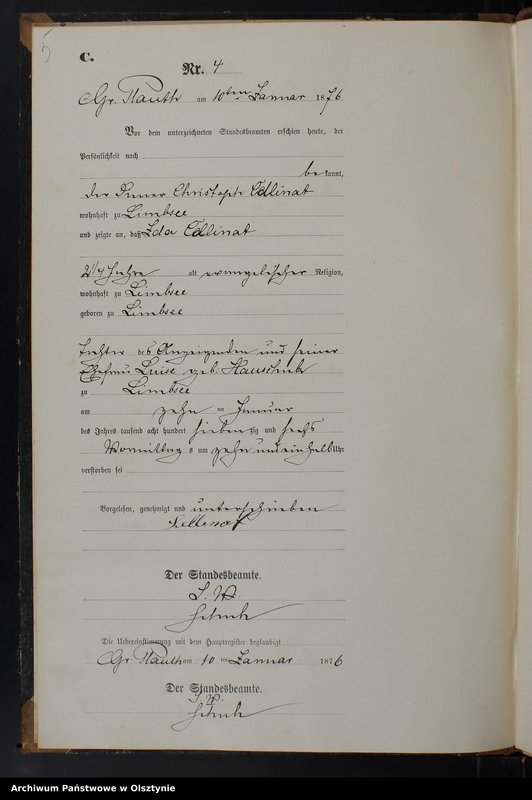 5
C.
Nr. 4
Gr. Rauth am 10ten Januar 1876
Vor dem unterzeichneten Standesbeamten erschien heute, der
Persönlichkeit nach
be kannt,
der Inner Christoph Edlinat
wohnhaft zu Limbsee
und zeigte an, daß Ida Edlinat
2 1/4 Jahre alt evangelischer Religion,
wohnhaft zu Limbsee
geboren zu Limbsee
Tochter des Anzeigenden und seiner
Ehefrau Luise geb.
zu Limbsee
am zehn ten Januar
des Jahres tausend acht hundert sieben zig und sechs
Vormittag s um zehn und ein halb Uhr
verstorben sei
Vorgelesen, genehmigt und unterschrieben
Der Standesbeamte.
Die Uebereinstimmung mit dem Hauptregister beglaubigt
Gr Rauth am 10 ten Januar 1876
Der Standesbeamte.
Archiwum Państwowe w Olsztynie